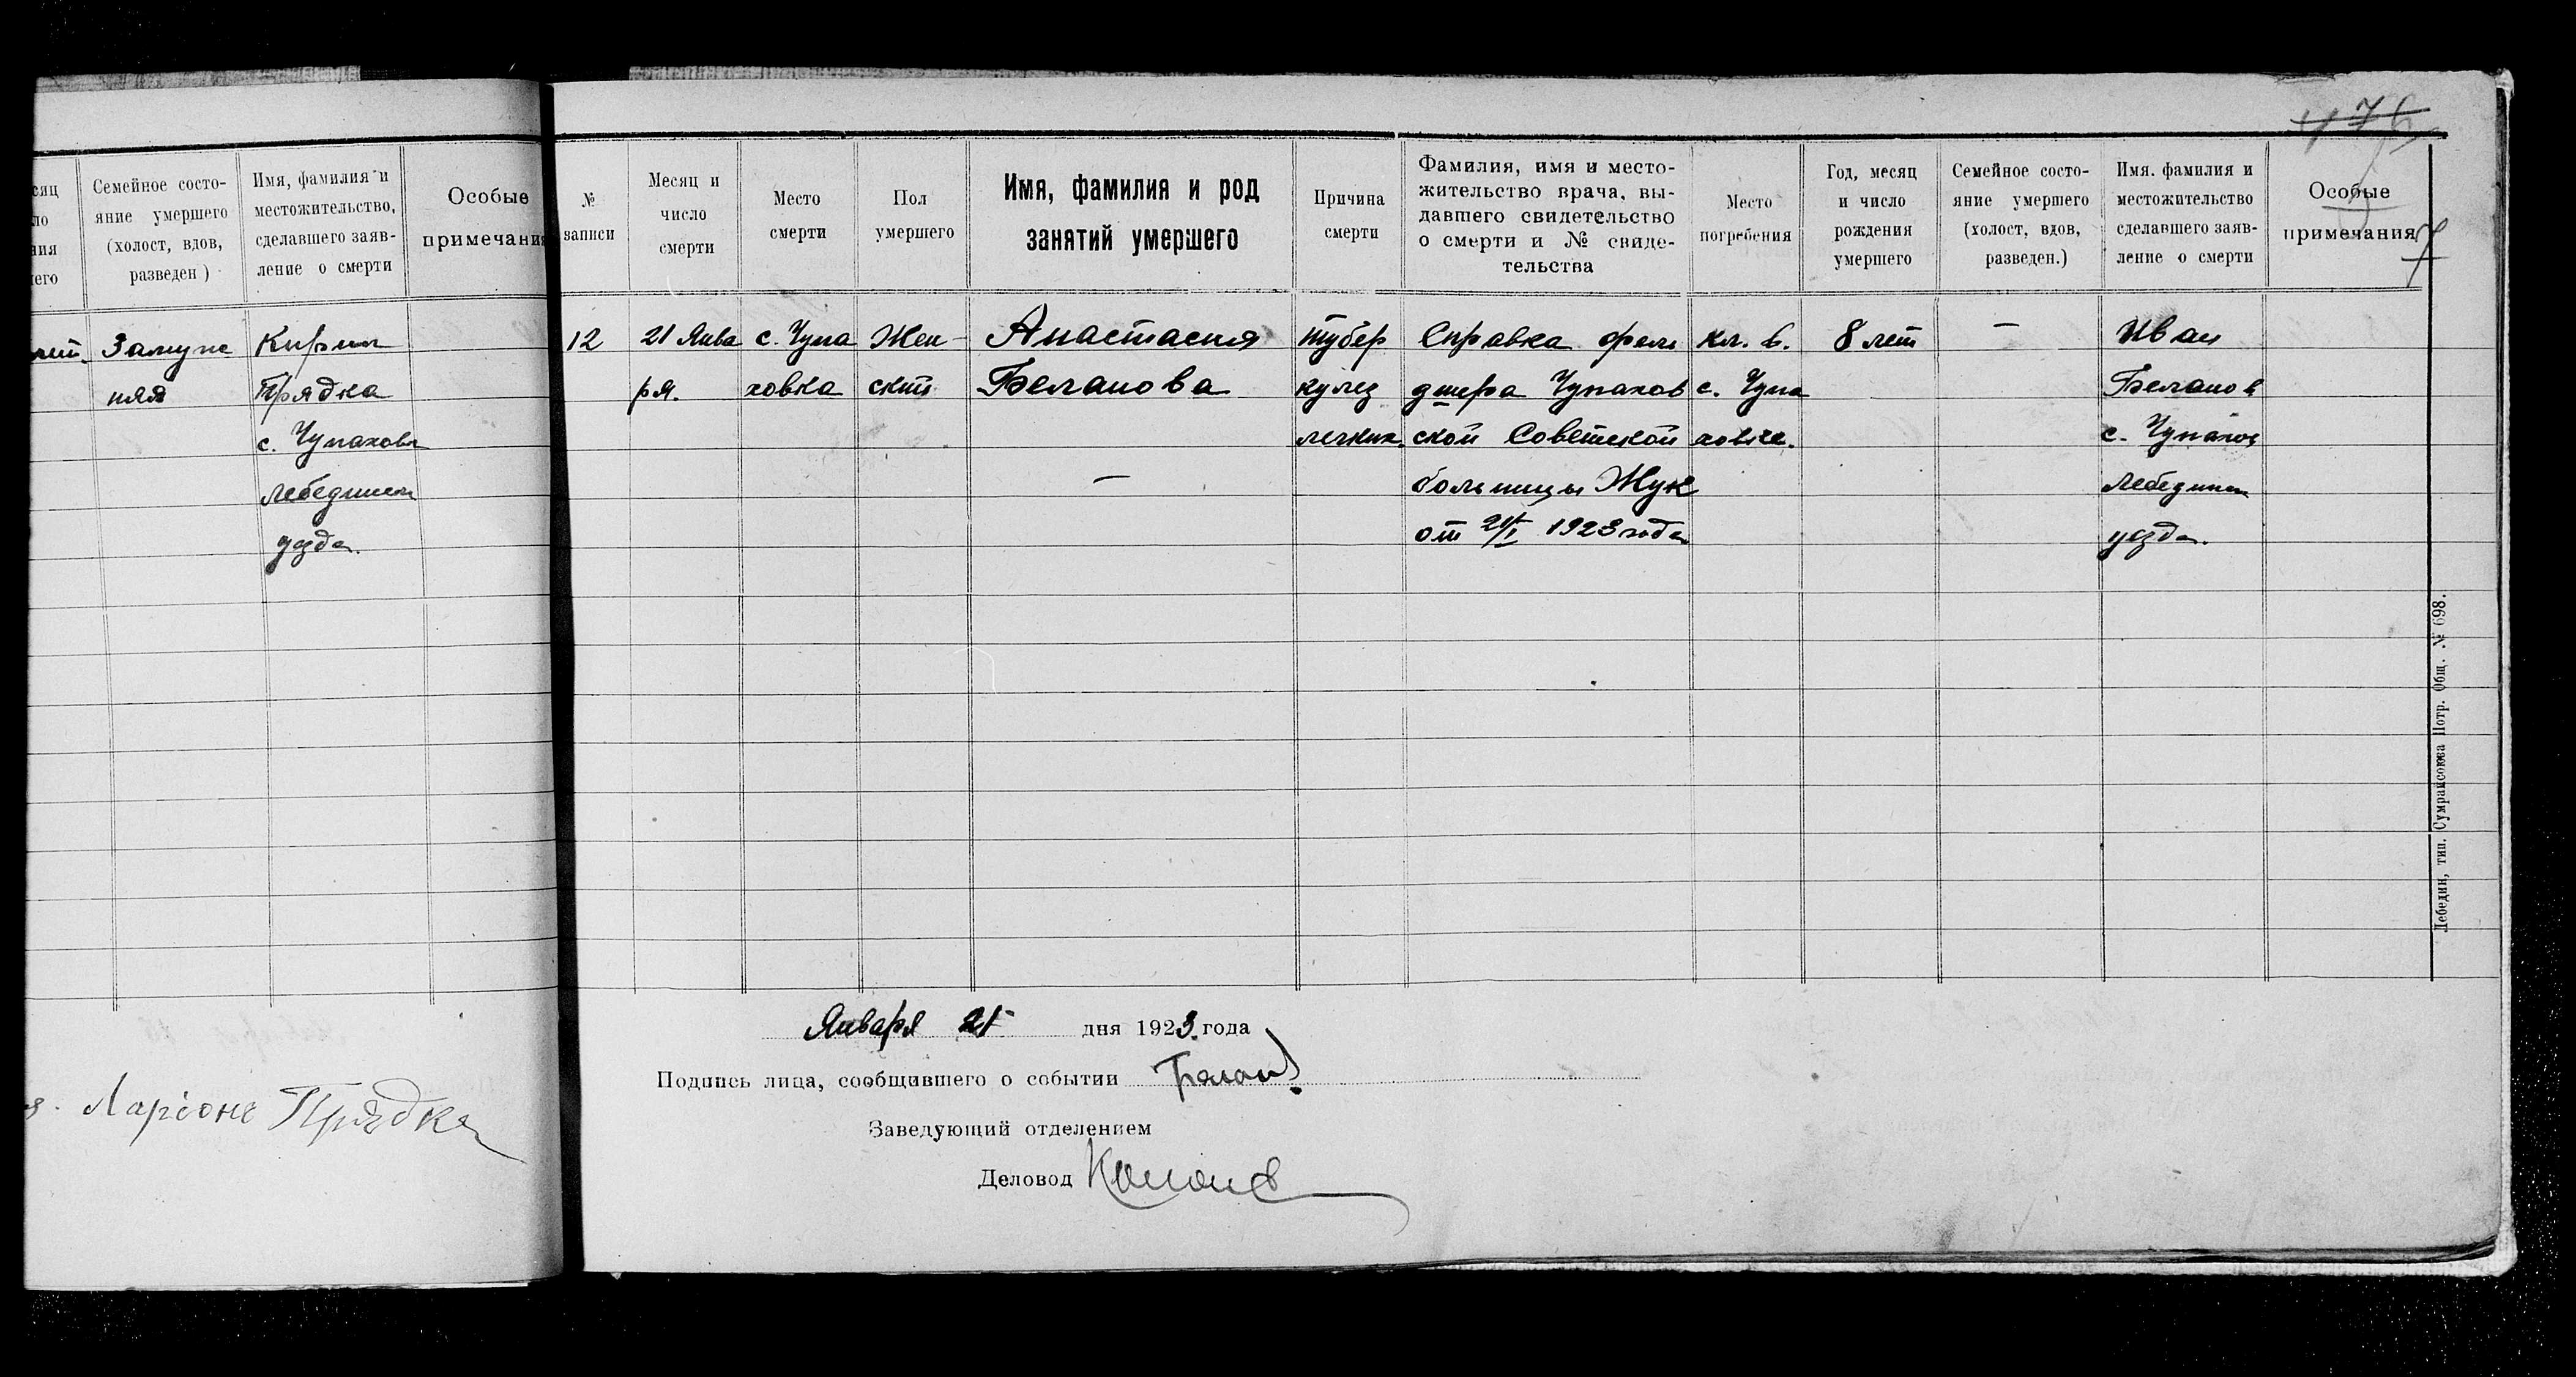 476
Семейное состо-
яние умершего
(холост, вдов,
разведен)
Имя, фамилия и
местожительство,
сделавшего заяв-
ление о смерти
Особые
примечания
Замуж
няя
Кирил
Прядка
с. Чупаховк
Лебединск
уезда.
Ларіонъ Прядка
№
записи
Месяц и
число
смерти
Место
смерти
Пол
умершего
Имя, фамилия и род
занятий умершего
Причина
смерти
Фамилия, имя и место-
жительство врача, вы-
давшего свидетельство
о смерти и № свиде-
тельства
Место
погребения
Год, месяц
и число
рождения
умершего
Семейное состо-
яние умершего
(холост, вдов,
разведен.)
Имя. фамилия и
местожительство
сделавшего заяв-
ление о смерти
Особые
примечания
12
21 Янва
ря.
с. Чупа
ховка
Жен-
ский
Анастасия
Беланова
—
тубер
кулез
легких.
Справка фель
дшера Чупахов
ской Советской
больницы Жук
от 21/I 1923 года
кл. в.
с. Чупа
ховке.
8 лет
—
Иван
Беланов
с. Чупахов
Лебединск
уезда.
Января 21 дня 1923 года
Подпись лица, сообщившего о событии
Заведующий отделением
Деловод
Лебедин, тип. Сумрайсоюза Потр. Общ. № 698.